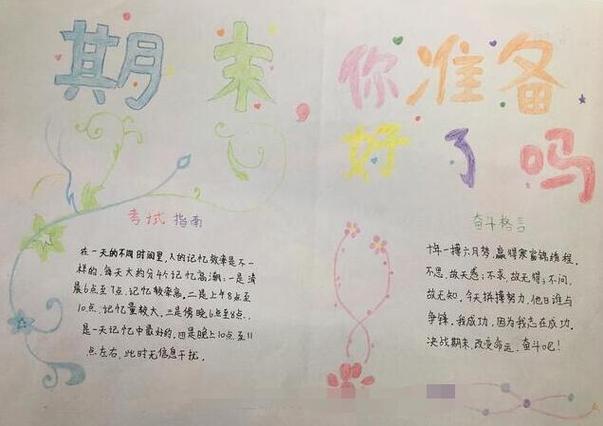 期末你准备
好了吗
考试指南
在一天的不同时间里,人的记忆效果是不一
样的,每天大约分4个记忆高潮:一是清
晨6点至7点,记忆较率高.二是上午8点至
10点.记忆量较大,三是傍晚6点至8点.
是一天记忆中最好的,四是晚上10点至11
点左右,此时无信息干扰.
奋斗格言
十年一搏六月梦,赢得寒窗锦绣程,
不思,故无惑;不求,故无得;不问,
故无知,今天拼搏努力,他日谁与
争锋,我成功,因为我志在成功.
决战期末,改变命运,奋斗吧!